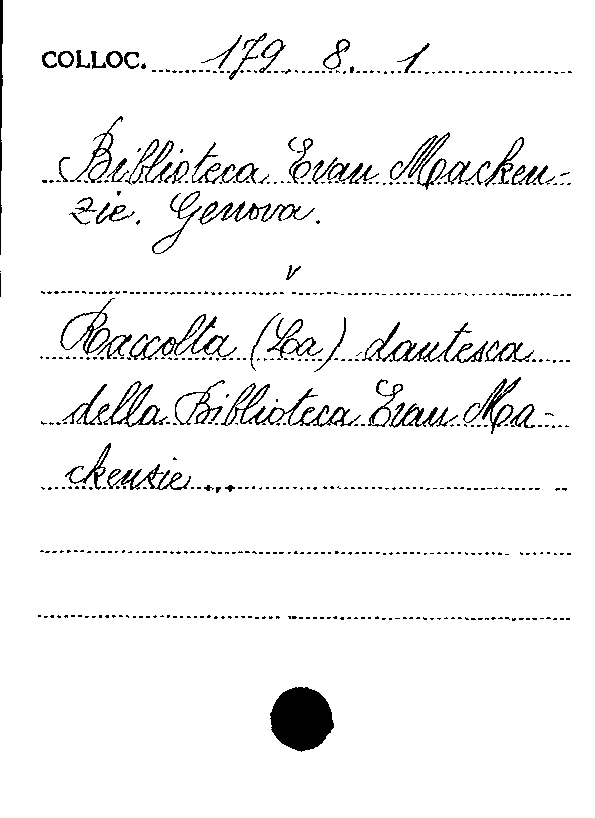 COLLOC. 179. 8. 1
Biblioteca Evan Macken-
zie. Genova.
v
Raccolta (La) dantesca
della Biblioteca Evan Ma-
ckenzie...